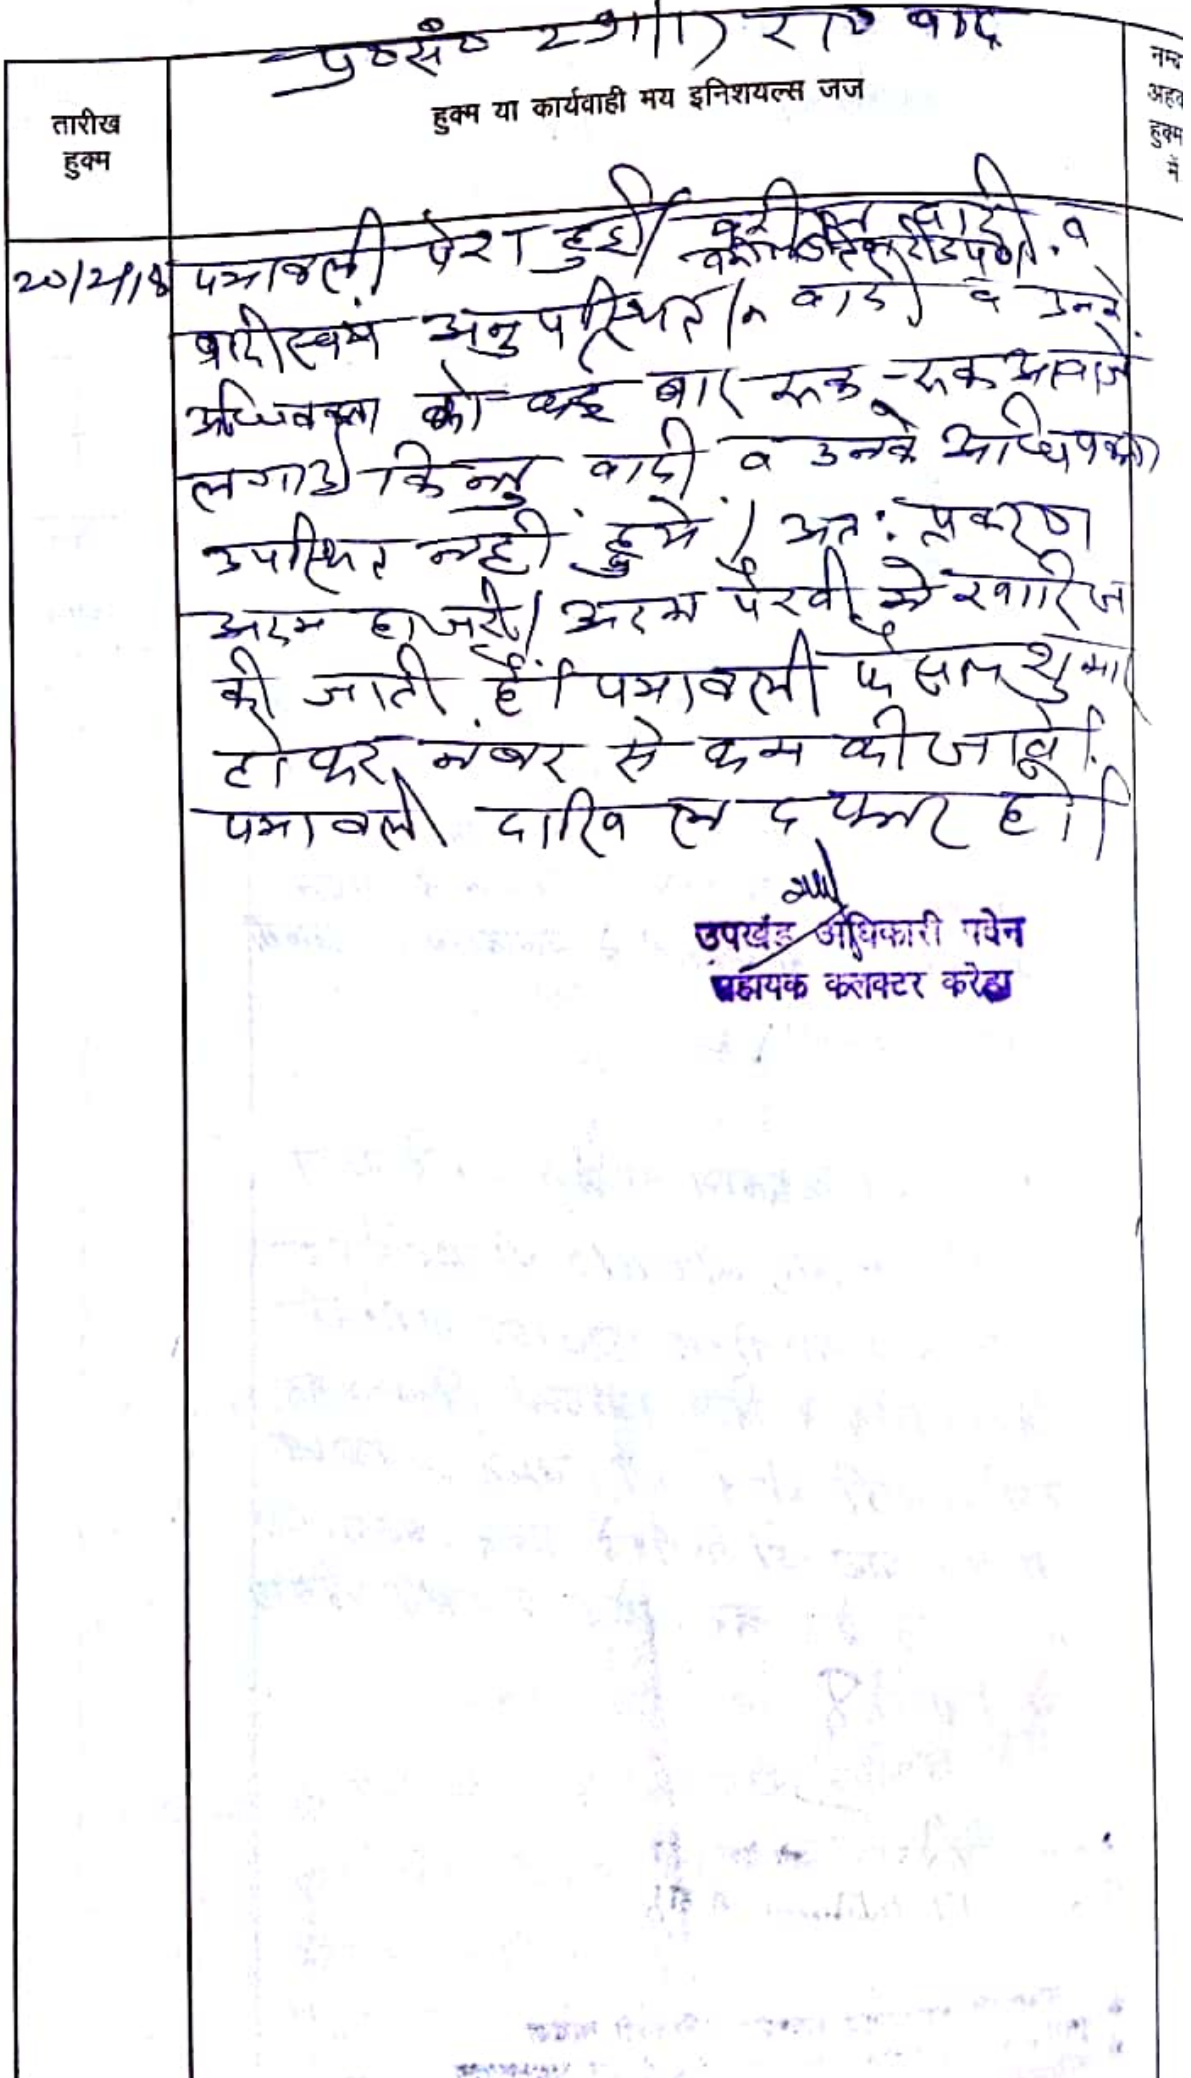 प्र०सं०
तारीख
हुक्म
हुक्म या कार्यवाही मय इनिशयल्स जज
हुक्म
में
पत्रावली पेश हुई। व
वादी स्वयं अनुपस्थित। वादी व उनके
अधिवक्ता को कई बार रूक-रूक आवाजें
लगाई किन्तु वादी व उनके अधिवक्ता
उपस्थित नहीं हुये। अतः प्रकरण
अदम हाजरी/अदम पैरवी में खारिज
की जाती है। पत्रावली फैसल शुमार
होकर नंबर से कम की जावे।
पत्रावली दाखिल दफ्तर हो।
उपखंड अधिकारी पदेन
सहायक कलक्टर करेड़ा